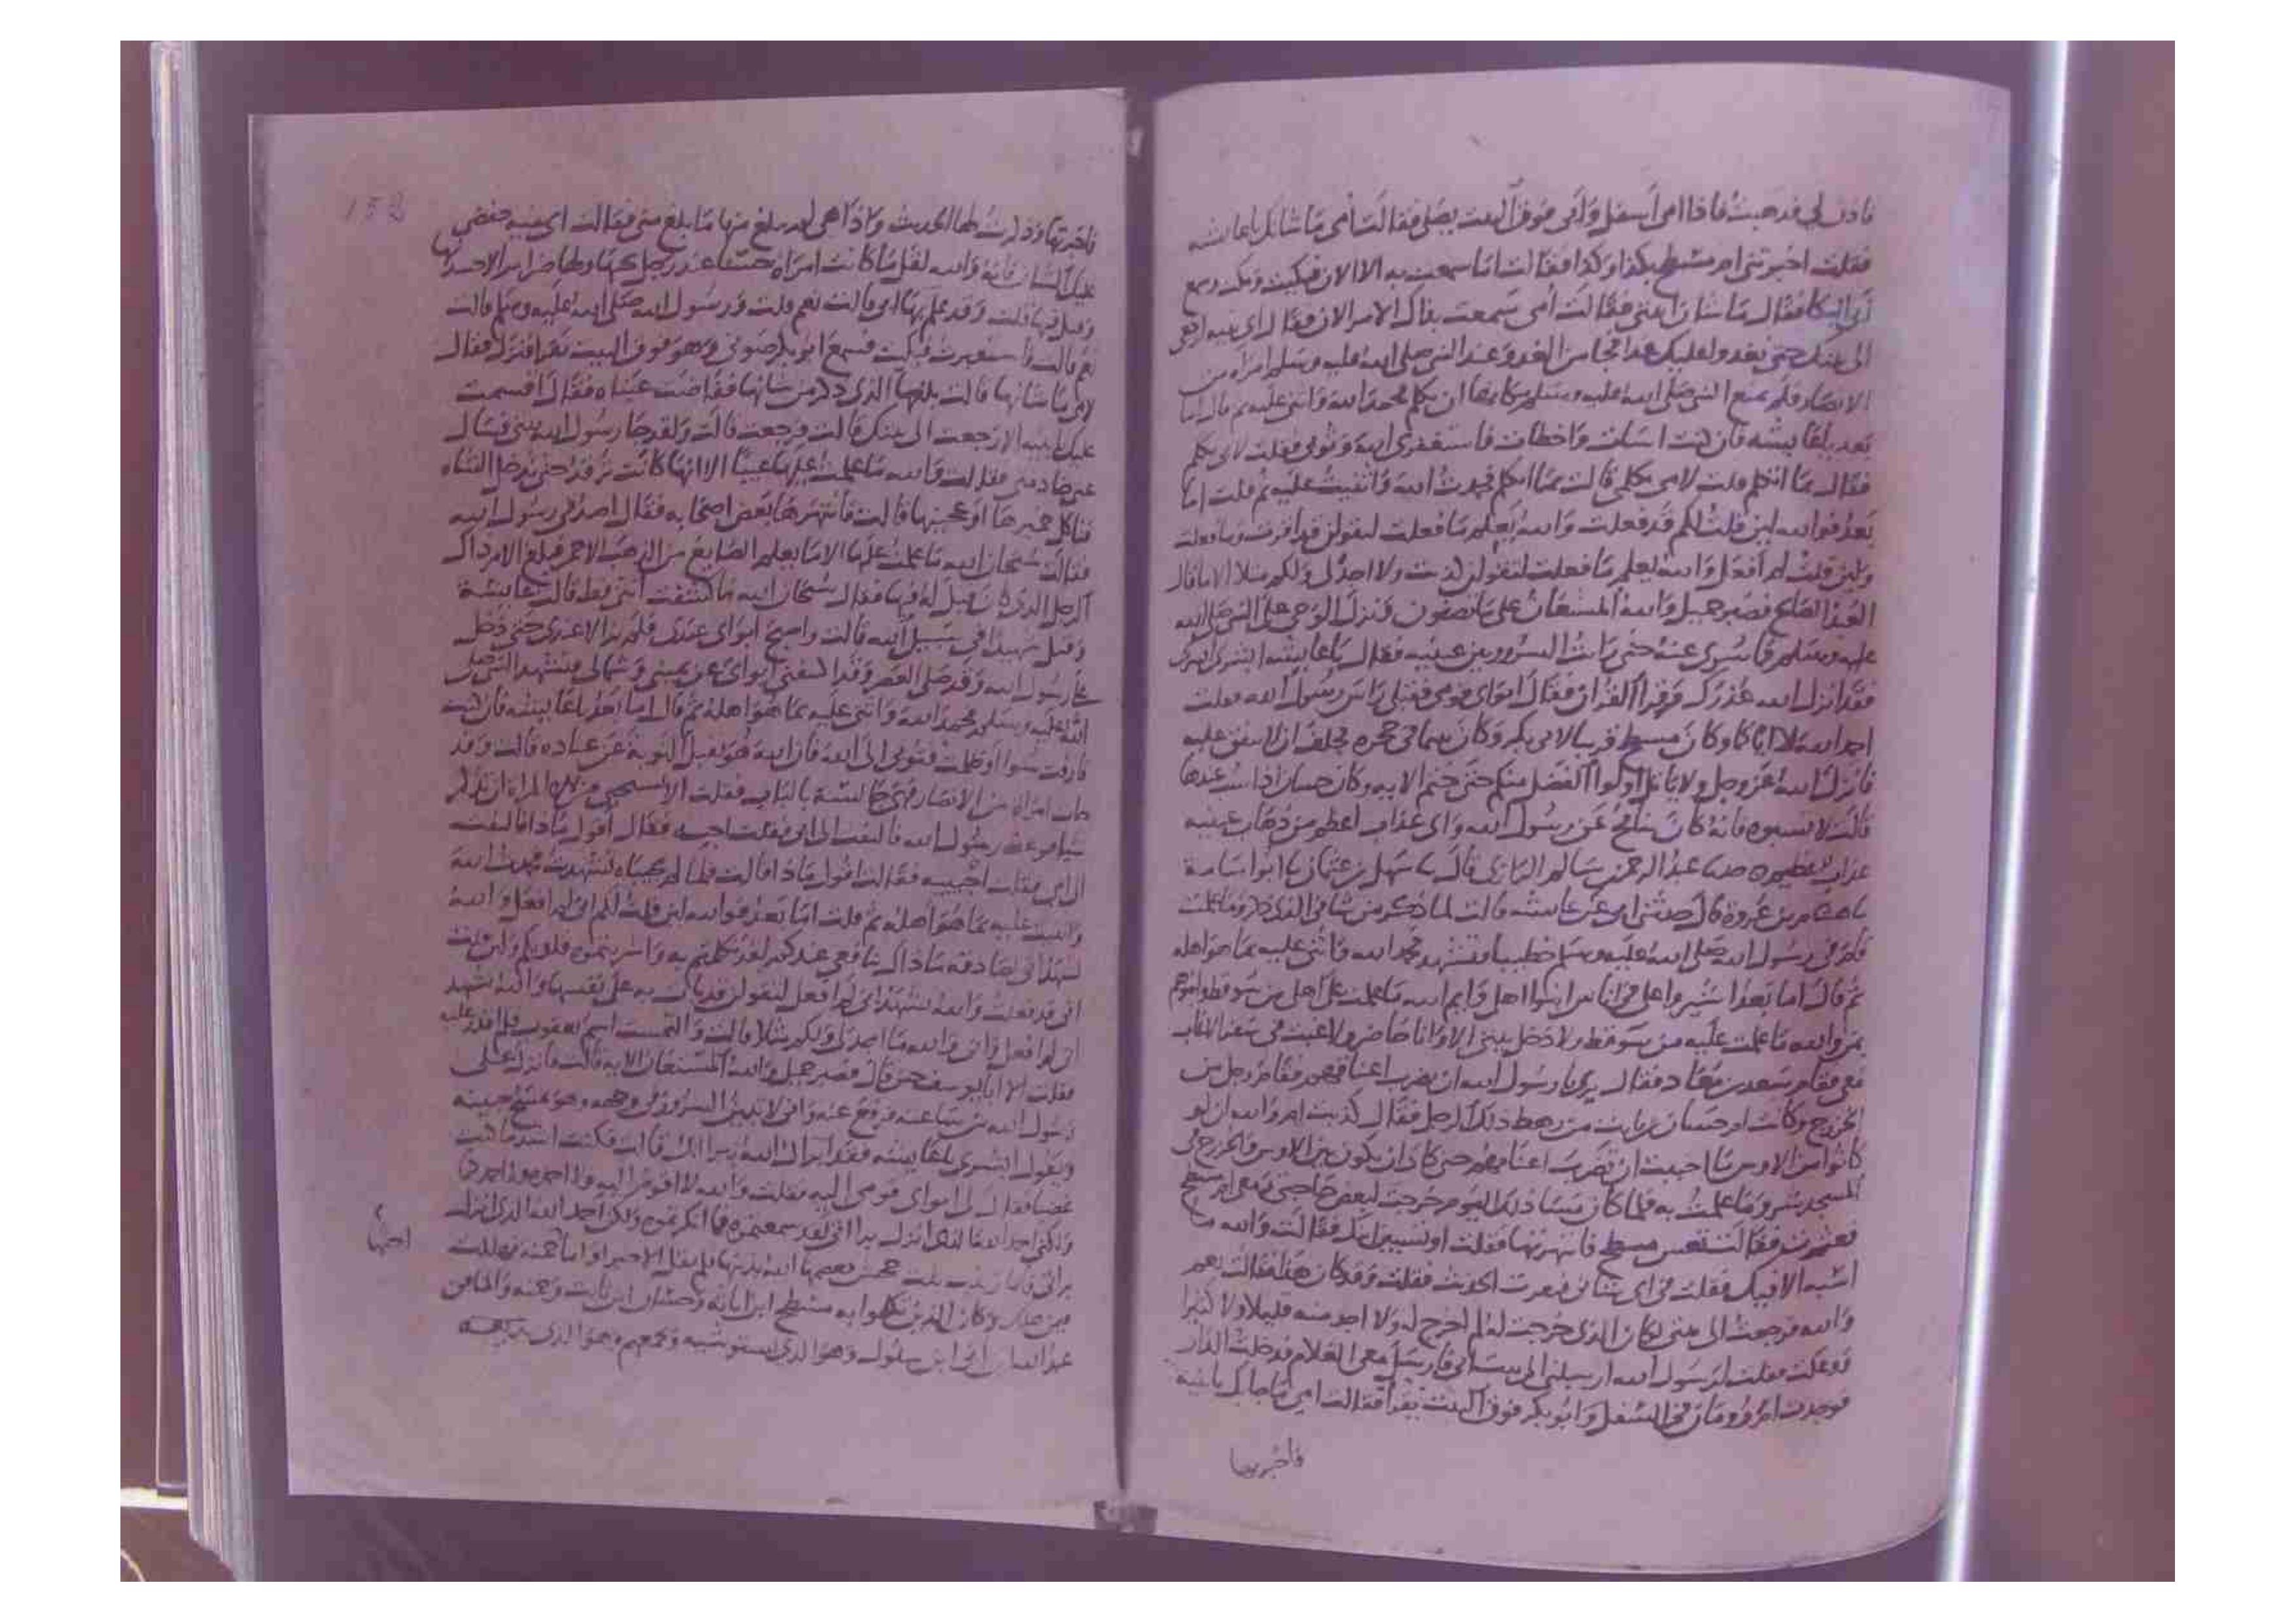 فاذن لي فذهبت فاذا امي اسفل وابي فوق البيت يصلي فقالت امي ما شانك يا عايشه
فقلت اخبرتني ام مسطح بكذا وكذا فقالت انا ما سمعت به الا الان فبكيت وبكت وسمع
ابي البكا فقال ما شان ابنتي فقالت امي سمعت بذاك الامر الان فقال اي بنيه ارجعي
الى بيتك حتى نغدو عليك غدا فجا من الغد وعند النبي صلى الله عليه وسلم امراه من
الانصار فلم يمنع النبي صلى الله عليه وسلم مكانها ان تكلم فحمد الله واثنى عليه ثم قال اما
بعد يا عايشه فان كنت اسات واخطات فاستغفري الله وتوبي فقلت لابي تكلم
فقال بما اتكلم فقلت لامي تكلمي قالت بما اتكلم فحمدت الله واثنيت عليه ثم قلت اما
بعد فوالله لين قلت لكم قد فعلت والله يعلم ما فعلت لتقولن قد اقرت وما فعلت
ولين قلت لم افعل والله يعلم ما فعلت لتقولن كذبت ولا اجد لي ولكم مثلا الا ما قال
العبد الصالح فصبر جميل والله المستعان على ما تصفون فنزل الوحي على النبي صلى الله
عليه وسلم فما سري عنه حتى رايت السرور بين عينيه فقال يا عايشه ابشري ابشري
فقد انزل الله عذرك وقرا القران فقال ابواي قومي فقبلي راس رسول الله فقلت
احمد الله لا اياكما وكان مسطح قريبا لابي بكر وكان يتيما في حجره فحلف ان لا ينفق عليه
فانزل الله عز وجل ولا ياتل اولوا الفضل منكم حتى ختم الايه وكان حسان اذا سب عندها
قالت لا تسبوه فانه كان ينافح عن رسول الله واي عذاب اعظم من ذهاب عينيه
عذاب عظيم حدثنا عبد الرحمن بن سالم الرازي قال نا سهل بن عثمان نا ابو اسامة
نا هشام بن عروة قال حدثني ابي عن عايشه قالت لما ذكر من شاني الذي ذكر وما علمت
قام في رسول الله صلى الله عليه وسلم خطيبا فتشهد فحمد الله واثنى عليه بما هو اهله
ثم قال اما بعد اشيروا علي في اناس ابنوا اهلي وايم الله ما علمت على اهلي من سو قط وابنوهم
بمن والله ما علمت عليه من سو قط ولا دخل بيتي الا وانا حاضر ولا غبت في سفر الا غاب
معي فقام سعد بن معاذ فقال يا رسول الله ان نضرب اعناقهم فقام رجل من
الخزرج وكانت ام حسان بن ثابت من رهط ذلك الرجل فقال كذبت ام والله ان لو
كانوا من الاوس ما احببت ان تضرب اعناقهم حتى كاد ان يكون بين الاوس والخزرج في
المسجد شر وما علمت به فلما كان مسا ذلك اليوم خرجت لبعض حاجتي ومعي ام مسطح
فعثرت فقالت تعس مسطح فانتهرتها فقلت او تسبين ابنك فقالت والله ما
اسبه الا فيك فقلت في اي شاني فبقرت الحديث فقلت وقد كان هذا فقالت نعم
والله فرجعت الى بيتي لكان الذي خرجت له لم اخرج له ولا اجد منه قليلا ولا كثيرا
ووعكت فقلت لرسول الله ارسلني الى بيت ابي فارسل معي الغلام فدخلت الدار
فوجدت ام رومان في السفل وابو بكر فوق البيت يقرا فقالت امي ما جا بك يا بنيه
فاخبرتها
فاخبرتها وذكرت لها الحديث واذا هي لم يبلغ منها ما بلغ مني فقالت اي بنيه خفضي
عليك الشان فانه والله لقل ما كانت امراه حسنا عند رجل يحبها ولها ضراير الا حسدنها
وقيل فيها قلت وقد علم بها ابي قالت نعم قلت ورسول الله صلى الله عليه وسلم قالت
نعم قالت فاستعبرت فبكيت فسمع ابو بكر صوتي وهو فوق البيت يقرا فنزل فقال
لامي ما شانها قالت بلغها الذي ذكر من شانها ففاضت عيناه فقال اقسمت
عليك يا بنيه الا رجعت الى بيتك قالت فرجعت قالت ولقد جا رسول الله بيتي فسال
عني خادمتي فقالت والله ما علمت عليها عيبا الا انها كانت ترقد حتى تدخل الشاه
فتاكل خميرها او عجينها قالت فانتهرها بعض اصحابه فقال اصدقي رسول الله
فقالت سبحان الله ما علمت عليها الا ما يعلم الصايغ من الذهب الاحمر فبلغ الامر ذاك
الرجل الذي كان قيل له فيها فقال سبحان الله ما كشفت انثى قط قالت عايشة
وقتل شهيدا في سبيل الله قالت واصبح ابواي عندي فلم يزالا عندي حتى دخل
علي رسول الله وقد صلى العصر وقد اكتنفني ابواي عن يميني وشمالي فتشهد النبي صلى
الله عليه وسلم فحمد الله واثنى عليه بما هو اهله ثم قال اما بعد يا عايشه فان كنت
قارفت سوا او ظلمت فتوبي الى الله فان الله هو يقبل التوبة عن عباده قالت وقد
جات امراه من الانصار فهي جالسة بالباب فقلت الا تستحيي من هذه المراه ان تذكر
شيا فوعظ رسول الله فالتفت الى ابي فقلت اجبه فقال اقول ماذا فالتفت
الى امي فقلت اجيبيه فقالت اقول ماذا قالت فلما لم يجيباه تشهدت فحمدت الله
واثنيت عليه بما هو اهله ثم قلت اما بعد فوالله لين قلت لكم اني لم افعل والله
يشهد اني لصادقه ما ذاك بنافعي عندكم لقد تكلمتم به واشربتموه قلوبكم ولين قلت
اني قد فعلت والله يشهد اني لم افعل لتقولن قد باات به على نفسها والله يشهد
اني لم افعل واني والله ما اجد لي ولكم مثلا قالت والتمست اسم يعقوب فلم اقدر عليه
فقلت الا ابا يوسف حين قال فصبر جميل والله المستعان الايه قالت فانزل على
رسول الله من ساعته فرفع عنه واني لاتبين السرور في وجهه وهو يمسح جبينه
ويقول ابشري يا عايشه فقد انزل الله براتك قالت فكنت اشد ما كنت
غضبا فقال لي ابواي قومي اليه فقلت والله لا اقوم اليه ولا احمده ولا احمدكما
ولكني احمد الله الذي انزل براتي لقد سمعتموه فما انكرتموه ولكن احمد الله الذي انزل
براتي فاما زينب بنت جحش فعصمها الله بدينها فلم تقل الا خيرا واما حمنه فهلكت
اختها
فيمن هلك وكان الذين تكلموا به مسطح ابن اثاثه وحسان ابن ثابت وحمنه والمنافق
عبد الله بن ابي ابن سلول وهو الذي يستوشيه ويجمعهم وهو الذي
152